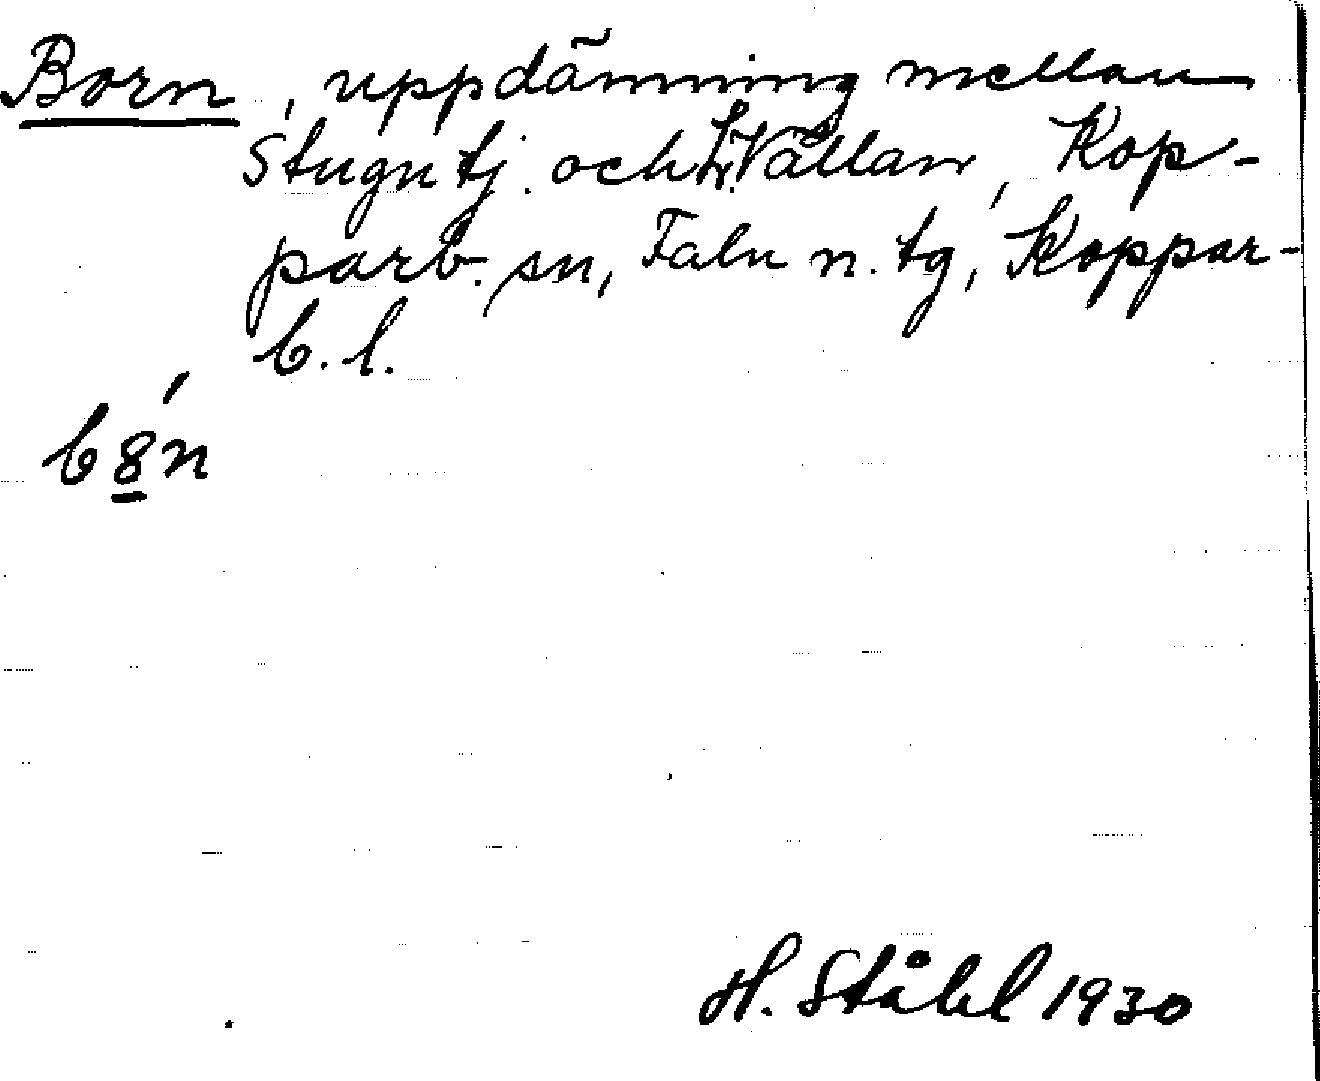 Born, uppdämning mellan
Stugutj. och L. Vällan, Kop-
parb. sn, Falu n. tg, Koppar-
b. l.
b8̲́n
H. Ståhl 1930